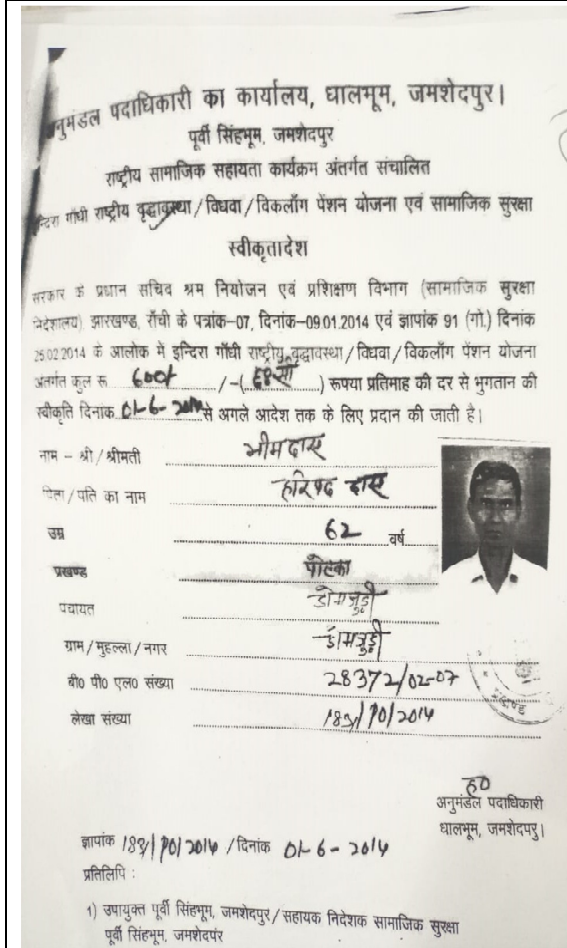 अनुमंडल पदाधिकारी का कार्यालय, धालभूम, जमशेदपुर।
पूर्वी सिंहभूम, जमशेदपुर
राष्ट्रीय सामाजिक सहायता कार्यक्रम अंतर्गत संचालित
इन्दिरा गाँधी राष्ट्रीय वृद्धावस्था/विधवा/विकलाँग पेंशन योजना एवं सामाजिक सुरक्षा
स्वीकृतादेश
सरकार के प्रधान सचिव श्रम नियोजन एवं प्रशिक्षण विभाग (सामाजिक सुरक्षा
निदेशालय) झारखण्ड, राँची के पत्रांक-07, दिनांक-09.01.2014 एवं ज्ञापांक 91 (गो.) दिनांक
25.02.2014 के आलोक में इन्दिरा गाँधी राष्ट्रीय वृद्धावस्था/विधवा/विकलाँग पेंशन योजना
अंतर्गत कुल रू 600/ /-( छःसौ ) रूपया प्रतिमाह की दर से भुगतान की
स्वीकृति दिनाक 01-6-2014 से अगले आदेश तक के लिए प्रदान की जाती है।
नाम - श्री/श्रीमती भीम दास
पिता/पति का नाम हरिपद दास
उम्र 62 वर्ष
प्रखण्ड पोटका
पंचायत
ग्राम/मुहल्ला/नगर
बी0 पी0 एल0 संख्या 28372/02-07
लेखा संख्या /2014
ह0
अनुमंडल पदाधिकारी
धालभूम, जमशेदपुर।
ज्ञापांक /2014 /दिनांक 01-6-2014
प्रतिलिपि :
1) उपायुक्त पूर्वी सिंहभूम, जमशेदपुर/सहायक निदेशक सामाजिक सुरक्षा
पूर्वी सिंहभूम, जमशेदपुर